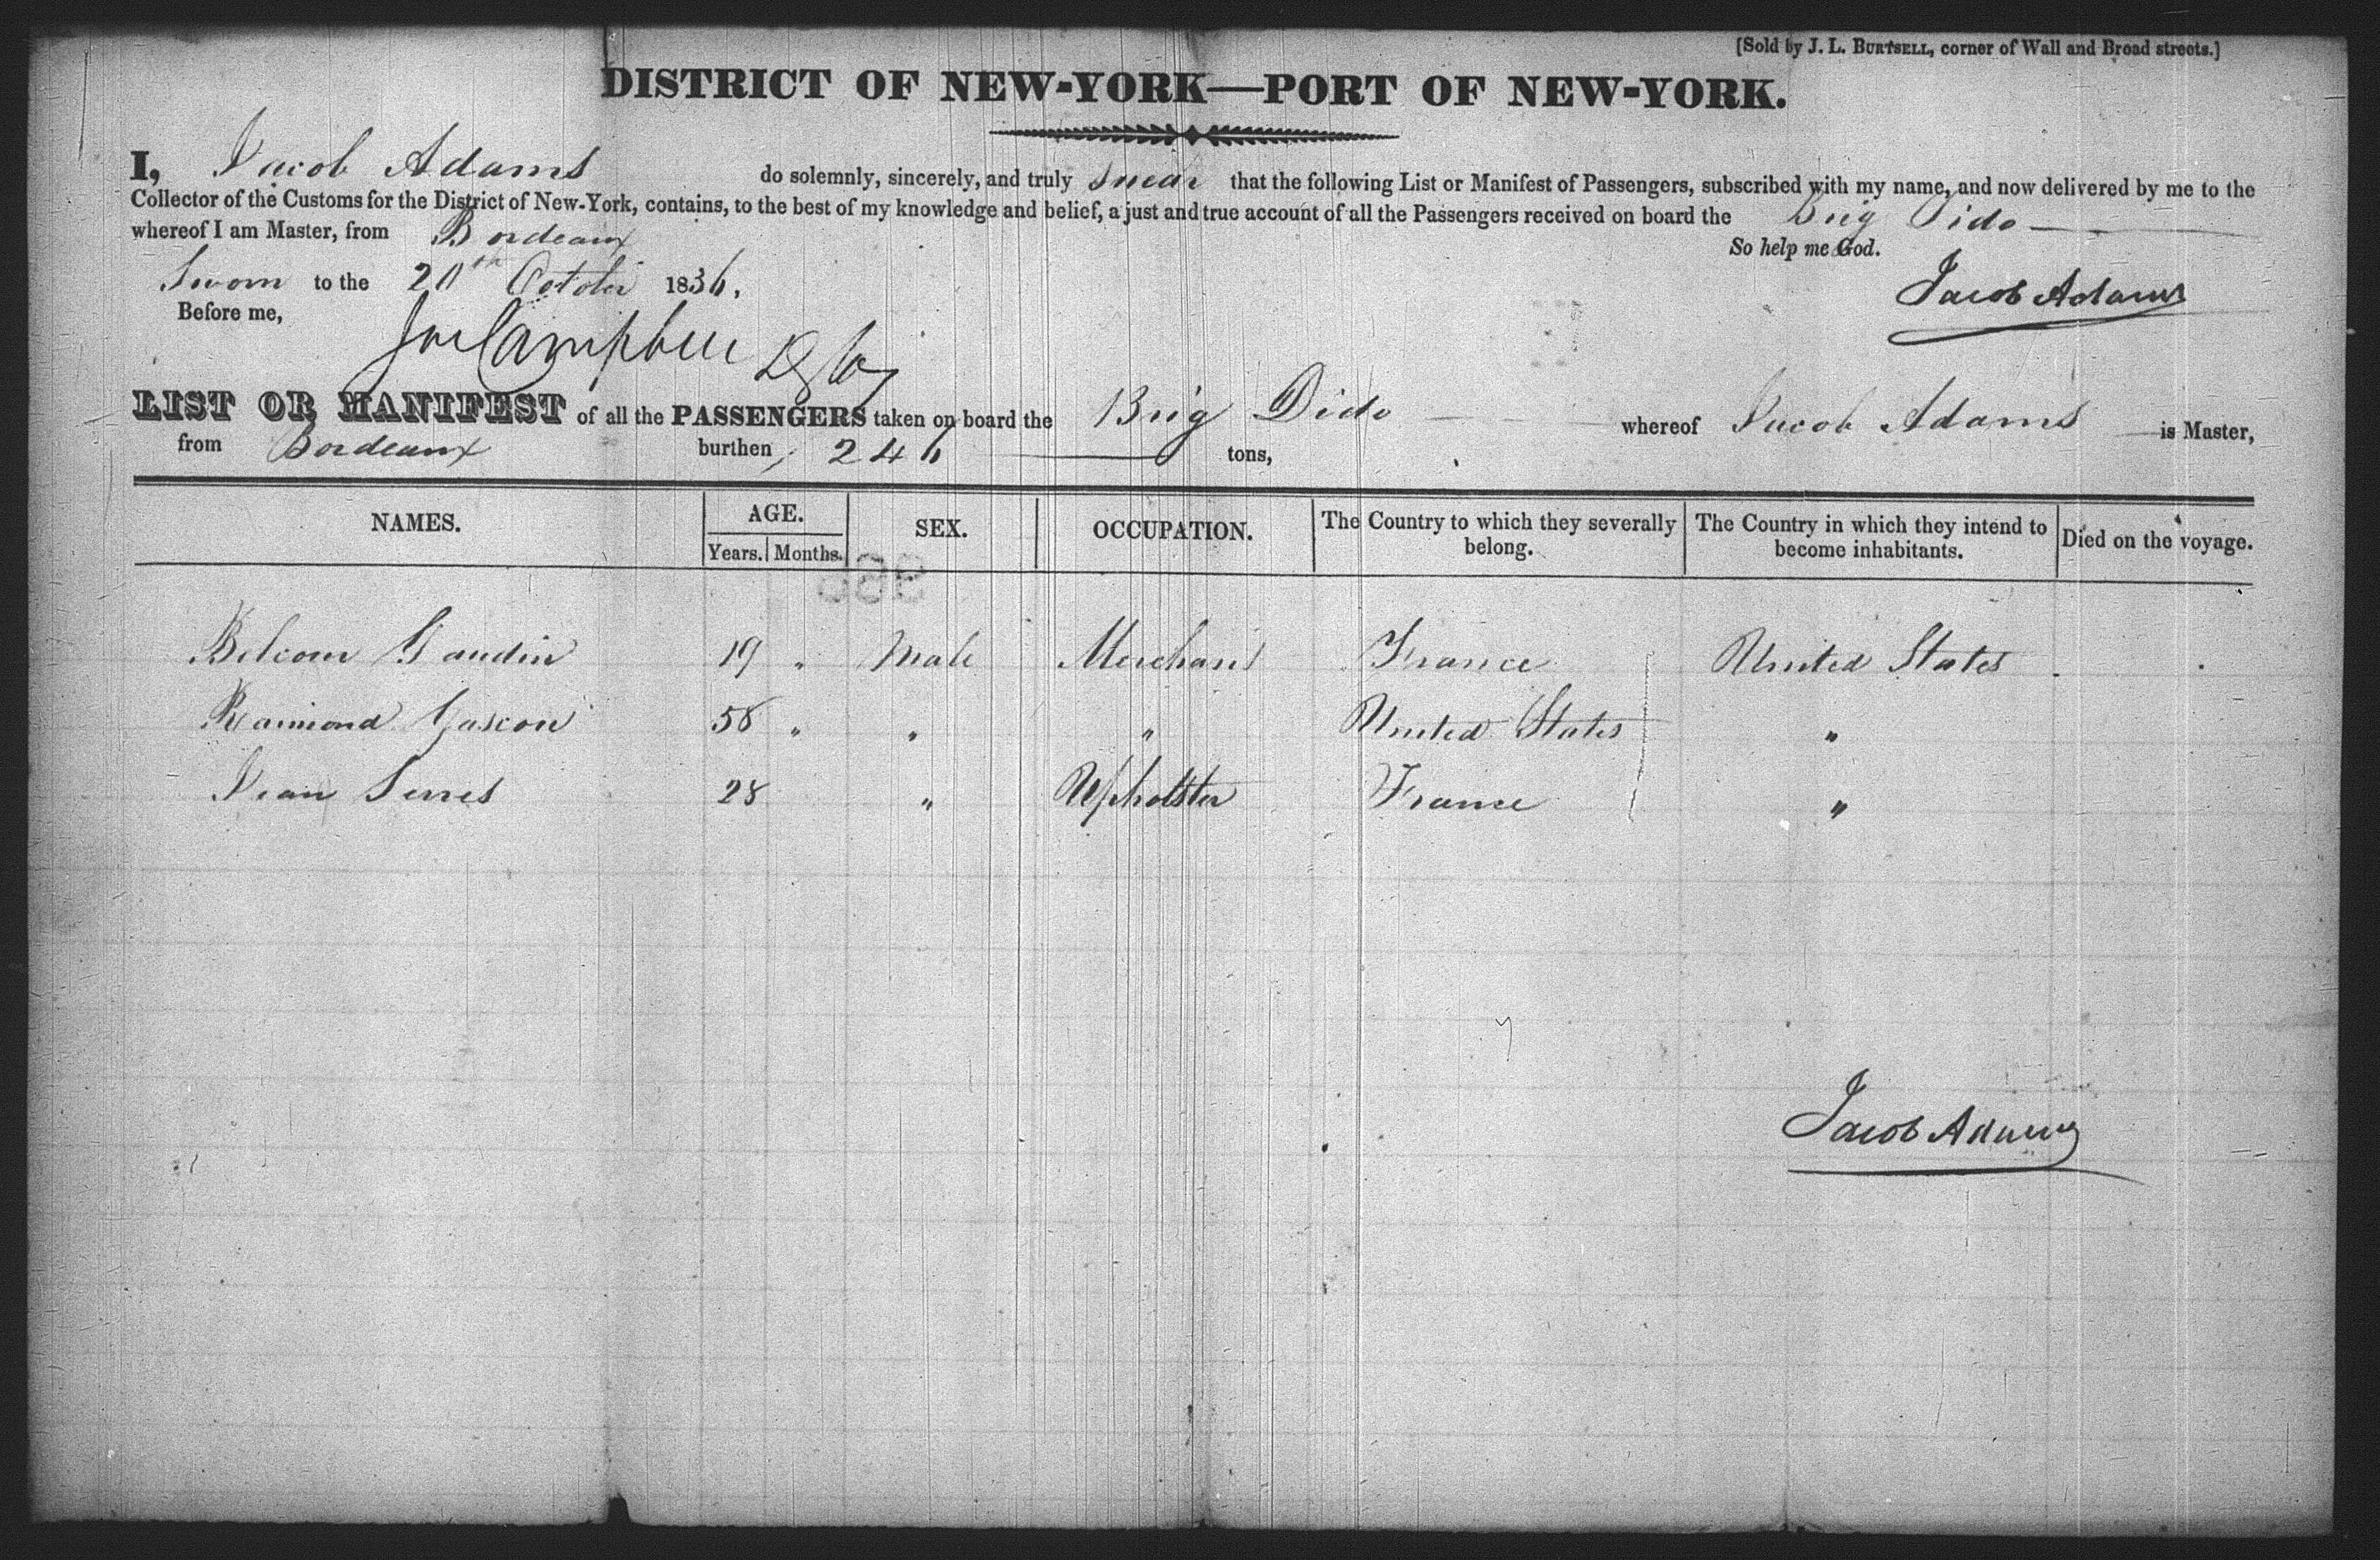 [Sold by J. L. BURTSELL, corner of Wall and Broad streets.]
DISTRICT OF NEW-YORK—PORT OF NEW-YORK.
I, Jacob Adams do solemnly, sincerely, and truly swear that the following List or Manifest of Passengers, subscribed with my name, and now delivered by me to the
Collector of the Customs for the District of New-York, contains, to the best of my knowledge and belief, a just and true account of all the Passengers received on board the Brig Dido
whereof I am Master, from Bordeaux
So help me God.
Sworn to the 20th October 1836,
Jacob Adams
Before me,
Campbell
LIST OR MANIFEST of all the PASSENGERS taken on board the Brig Dido whereof Jacob Adams is Master,
from Bordeaux burthen, 246 tons,
NAMES. AGE. SEX. OCCUPATION. The Country to which they severally belong. The Country in which they intend to become inhabitants. Died on the voyage.
Years. Months.
Belcour Gaudin 19 " Male Merchant France United States
Raimond Gascon 58 " " " United States "
Jean Serres 28 " Upholster France "
Jacob Adams